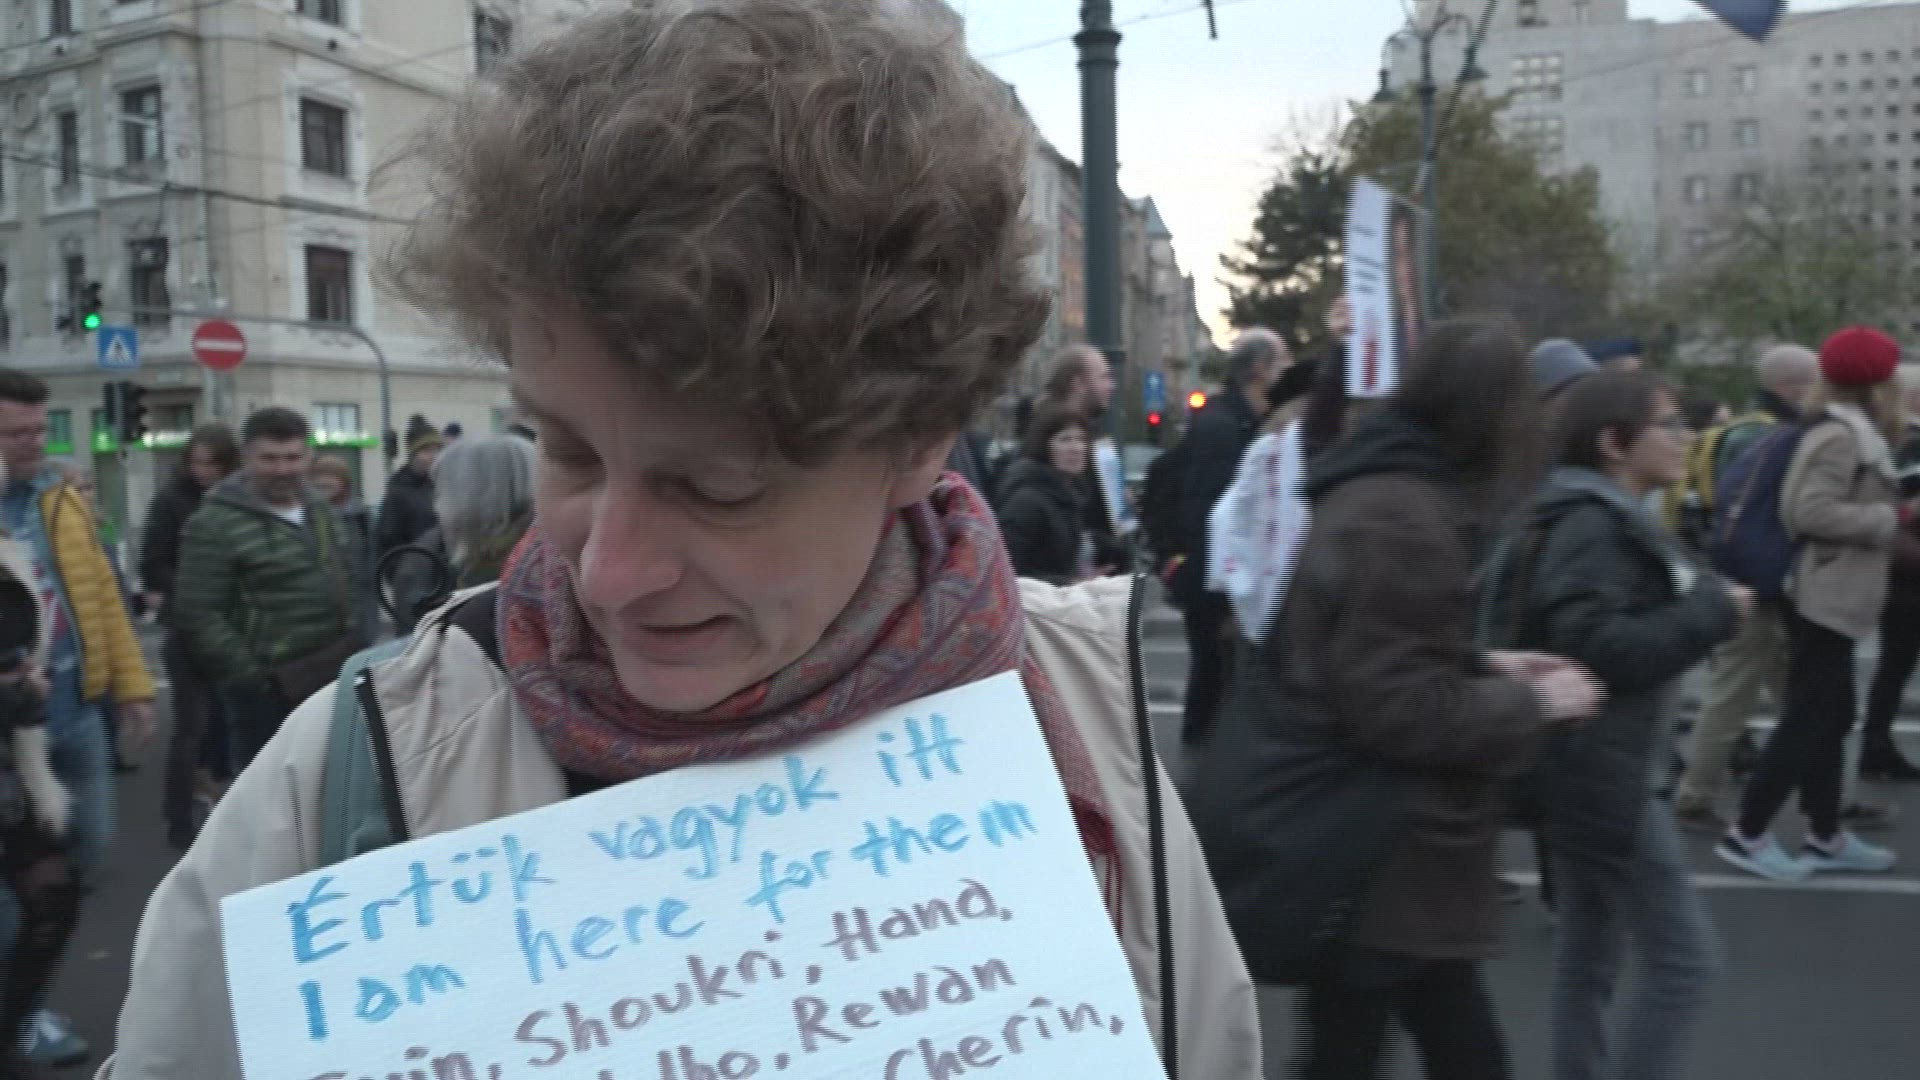 Értük vagyok itt
I am here for them
Shoukri, Hand,
Rewan
Cherîn,